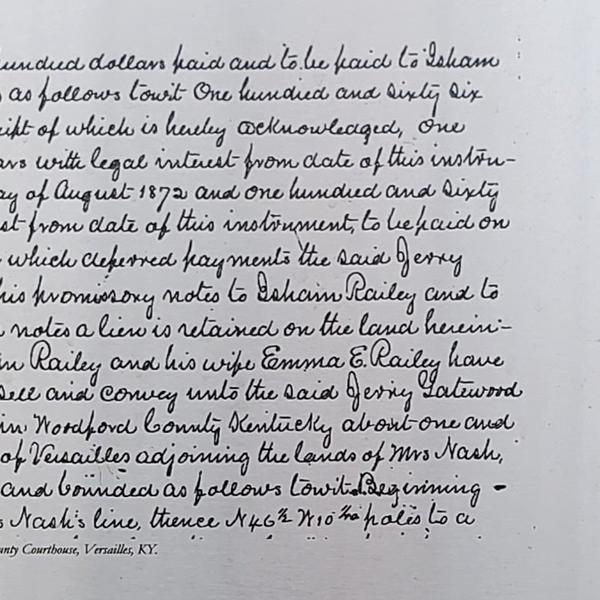 hundred dollars paid and to be paid to Isham
as follows towit One hundred and sixty six
eipt of which is hereby acknowledged, One
ars with legal interest from date of this instru-
ay of August 1872 and one hundred and sixty
st from date of this instrument, to be paid on
which deferred payments the said Jerry
his promissory notes to Isham Railey and to
notes a lien is retained on the land herein-
m Railey and his wife Emma E. Railey have
sell and convey unto the said Jerry Gatewood
in Woodford County Kentucky about one and
of Versailles adjoining the lands of Mrs Nash,
and bounded as follows towit. Beginning -
s Nash's line, thence N46½ W10 poles to a
unty Courthouse, Versailles, KY.